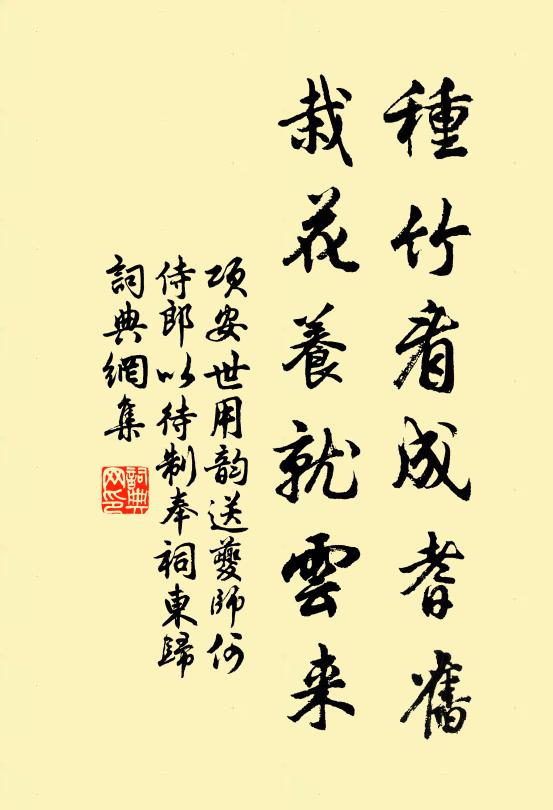 種竹看成耆舊
栽花養就雲来
項安世用韵送夔師何
侍郎以待制奉祠東歸
詞典網集
詞典
网印